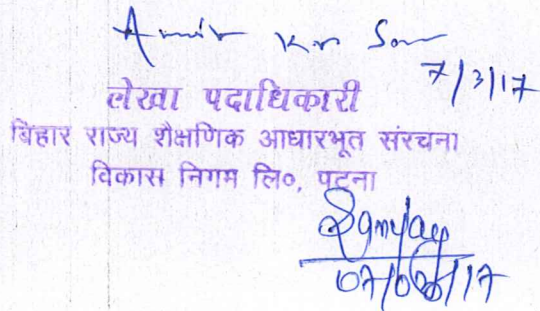 Amit Kr
7/3/17
लेखा पदाधिकारी
बिहार राज्य शैक्षणिक आधारभूत संरचना
विकास निगम लि०, पटना
07/03/17